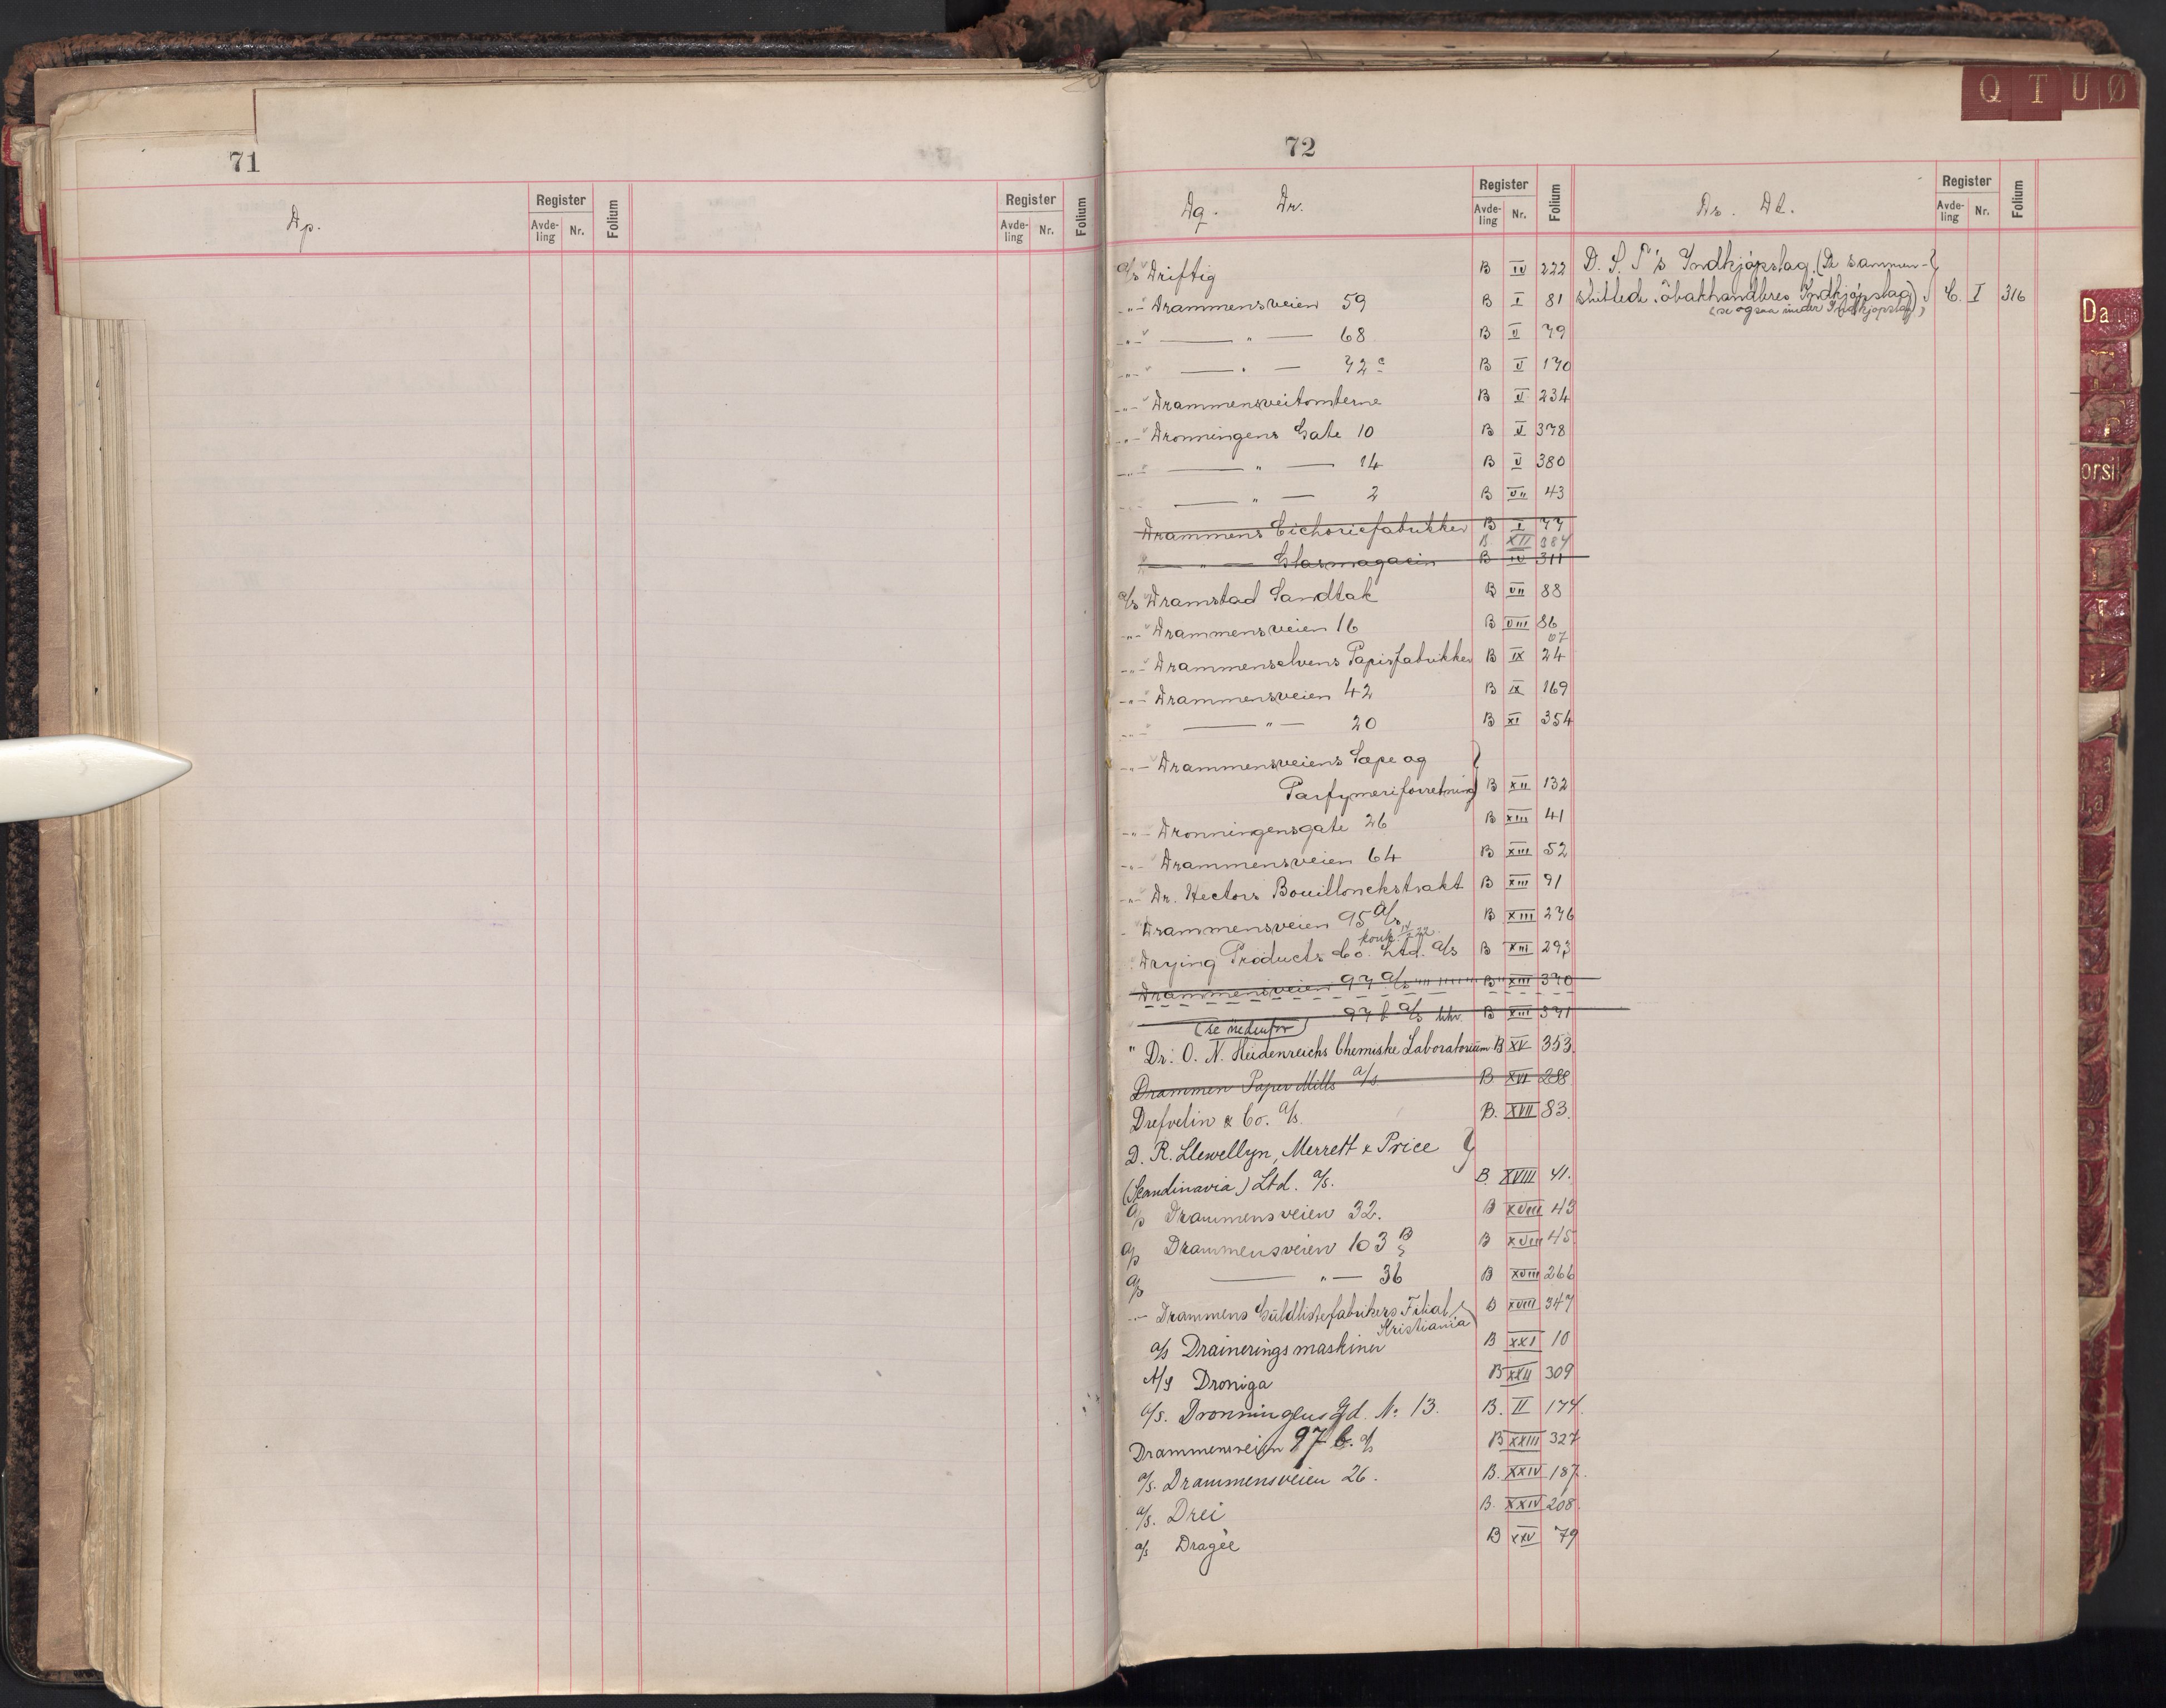 71
Dp.
Register
Avde-ling Nr. Folium
Register
Avde-ling Nr. Folium
Q T U Ø
72
Dq. Dr.
Register
Avde-ling Nr. Folium
Ds. Dt.
Register
Avde-ling Nr. Folium
a/s Driftig B IV 222
-"- Drammensveien 59 B I 81
-"- —— " —— 68 B V 79
-"- —— " —— 72 c B V 170
-"- Drammensveitomterne B V 234
-"- Dronningens Gate 10 B V 378
-"- —— " —— 14 B V 380
—— " —— 2 B VII 43
Drammens Cichoriefabrikker B I 77
B XII 384
—— " —— Glasmagasin B IV 311
a/s Dramstad Sandtak B VII 88
-"- Drammensveien 16 B VIII 86
-"- Drammenselvens Papirfabrikker B IX 24
-"- Drammensveien 42 B IX 169
-"- —— " —— 20 B XI 354
-"- Drammensveiens Sæpe og
Parfymeriforretning B XII 132
-"- Dronningensgate 26 B XIII 41
-"- Drammensveien 64 B XIII 52
-"- Dr. Hectors Bouillonekstrakt B XIII 91
Drammensveien 95 a/s B XIII 276
Drying Products Co. Ltd. a/s B XIII 293
Drammensveien 97 a/s B XIII 370
97 b a/s B XIII 371
(se nedenfor)
" Dr. O. N. Heidenreichs Chemiske Laboratorium B XV 353.
Drammen Paper Mills a/s B. XVI 288
Drefvelin & Co. a/s. B. XVII 83.
D. R. Llewellyn, Merrett & Price
(Scandinavia) Ltd. a/s. B. XVIII 41.
a/s Drammensveien 32. B XVIII 43
a/s Drammensveien 103 B B XVIII 45
a/s —— " —— 36 B XVIII 266
-"- Drammens Guldlistefabrikers Filial B XVIII 347
Kristiania
a/s Draineringsmaskiner B XXI 10
A/S Droniga B XXII 309
a/s. Dronningens Gd. No 13. B. II 174.
Drammensveien 97 b. a/s B XXIII 327
a/s. Drammensveien 26. B. XXIV 187.
a/s. Drei B. XXIV 208.
a/s Dragée B XXV 79
D. S. T's Indkjøpslag. (De sammen-
sluttede Tobakhandleres Indkjøpslag) C. I 316
(se ogsaa under Indkjøpslag)
Da
orsi